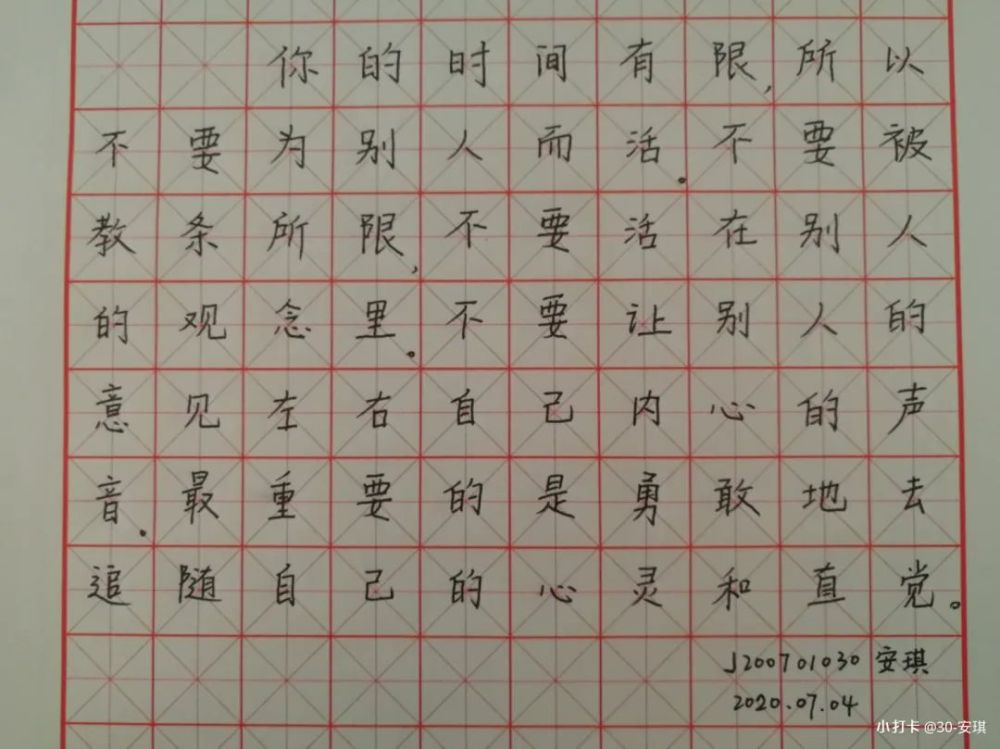 你的时间有限,所以
不要为别人而活。不要被
教条所限,不要活在别人
的观念里。不要让别人的
意见左右自己内心的声
音。最重要的是勇敢地去
追随自己的心灵和直觉。
J200701030 安琪
2020.07.04
小打卡 @30-安琪